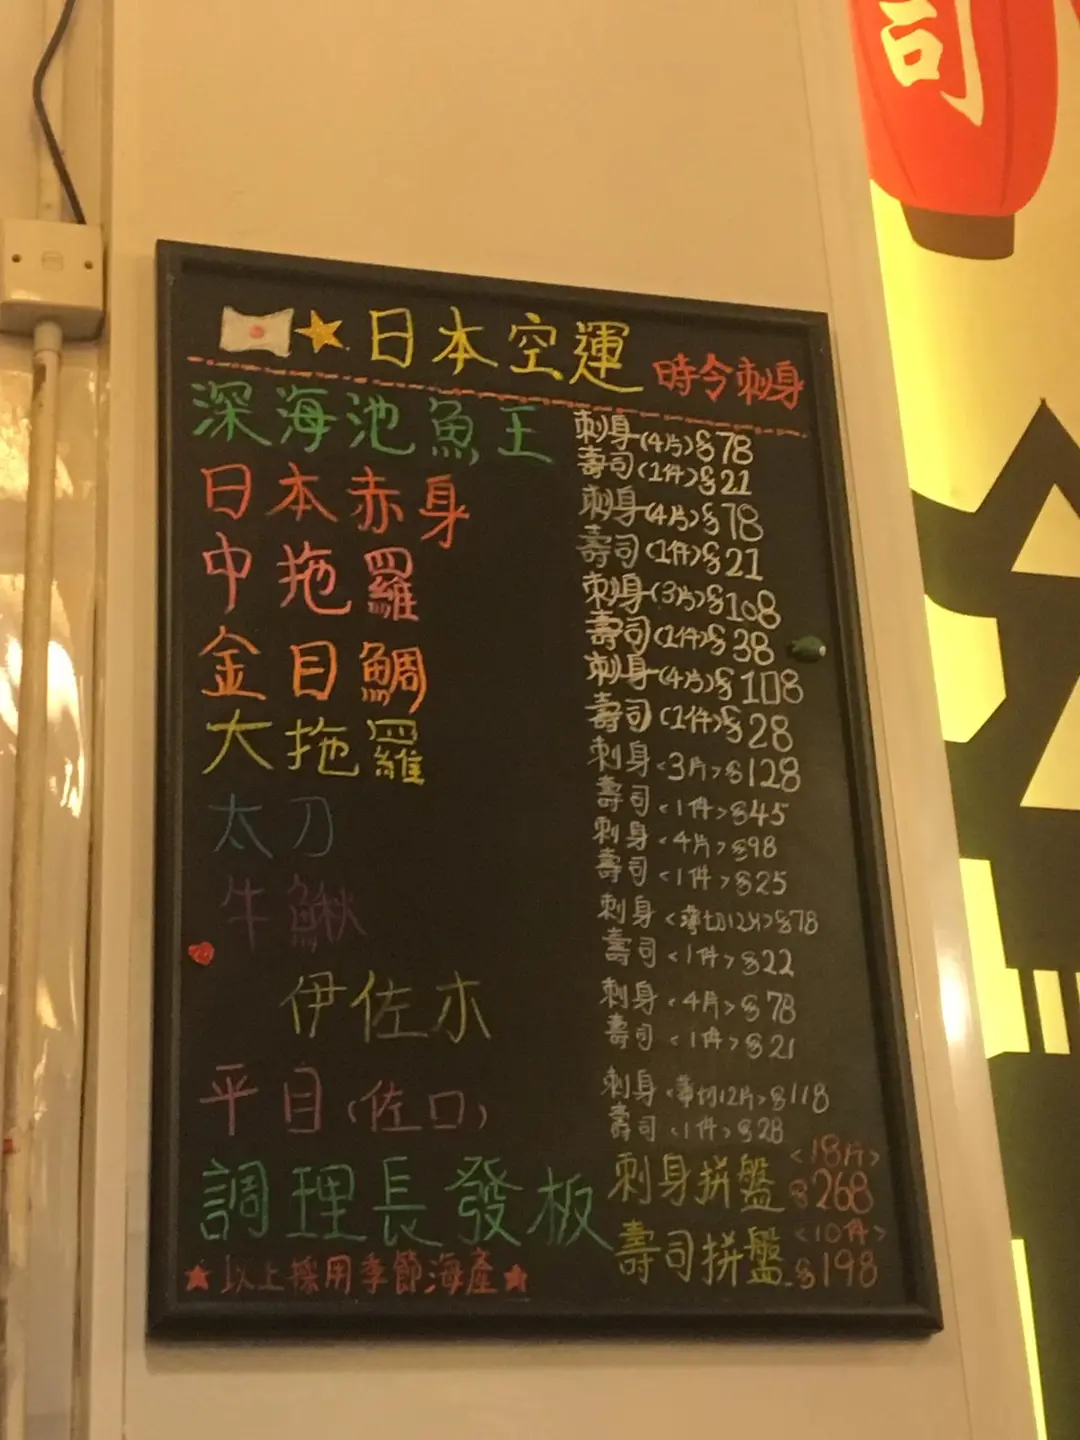 司
日本空運 時令刺身
深海池魚王 刺身(4片)$78
壽司(1件)$21
日本赤身 刺身(4片)$78
壽司(1件)$21
中拖羅 刺身(3片)$108
壽司(1件)$38
金目鯛 刺身(4片)$108
壽司(1件)$28
大拖羅 刺身<3片>$128
壽司<1件>$45
太刀 刺身<4片>$98
壽司<1件>$25
牛鰍 刺身<薄切12片>$78
壽司<1件>$22
伊佐木 刺身<4片>$78
壽司<1件>$21
平目(佐口) 刺身<薄切12片>$118
壽司<1件>$28
調理長發板 刺身拼盤 <18片> $268
壽司拼盤 <10件> $198
★以上採用季節海產★